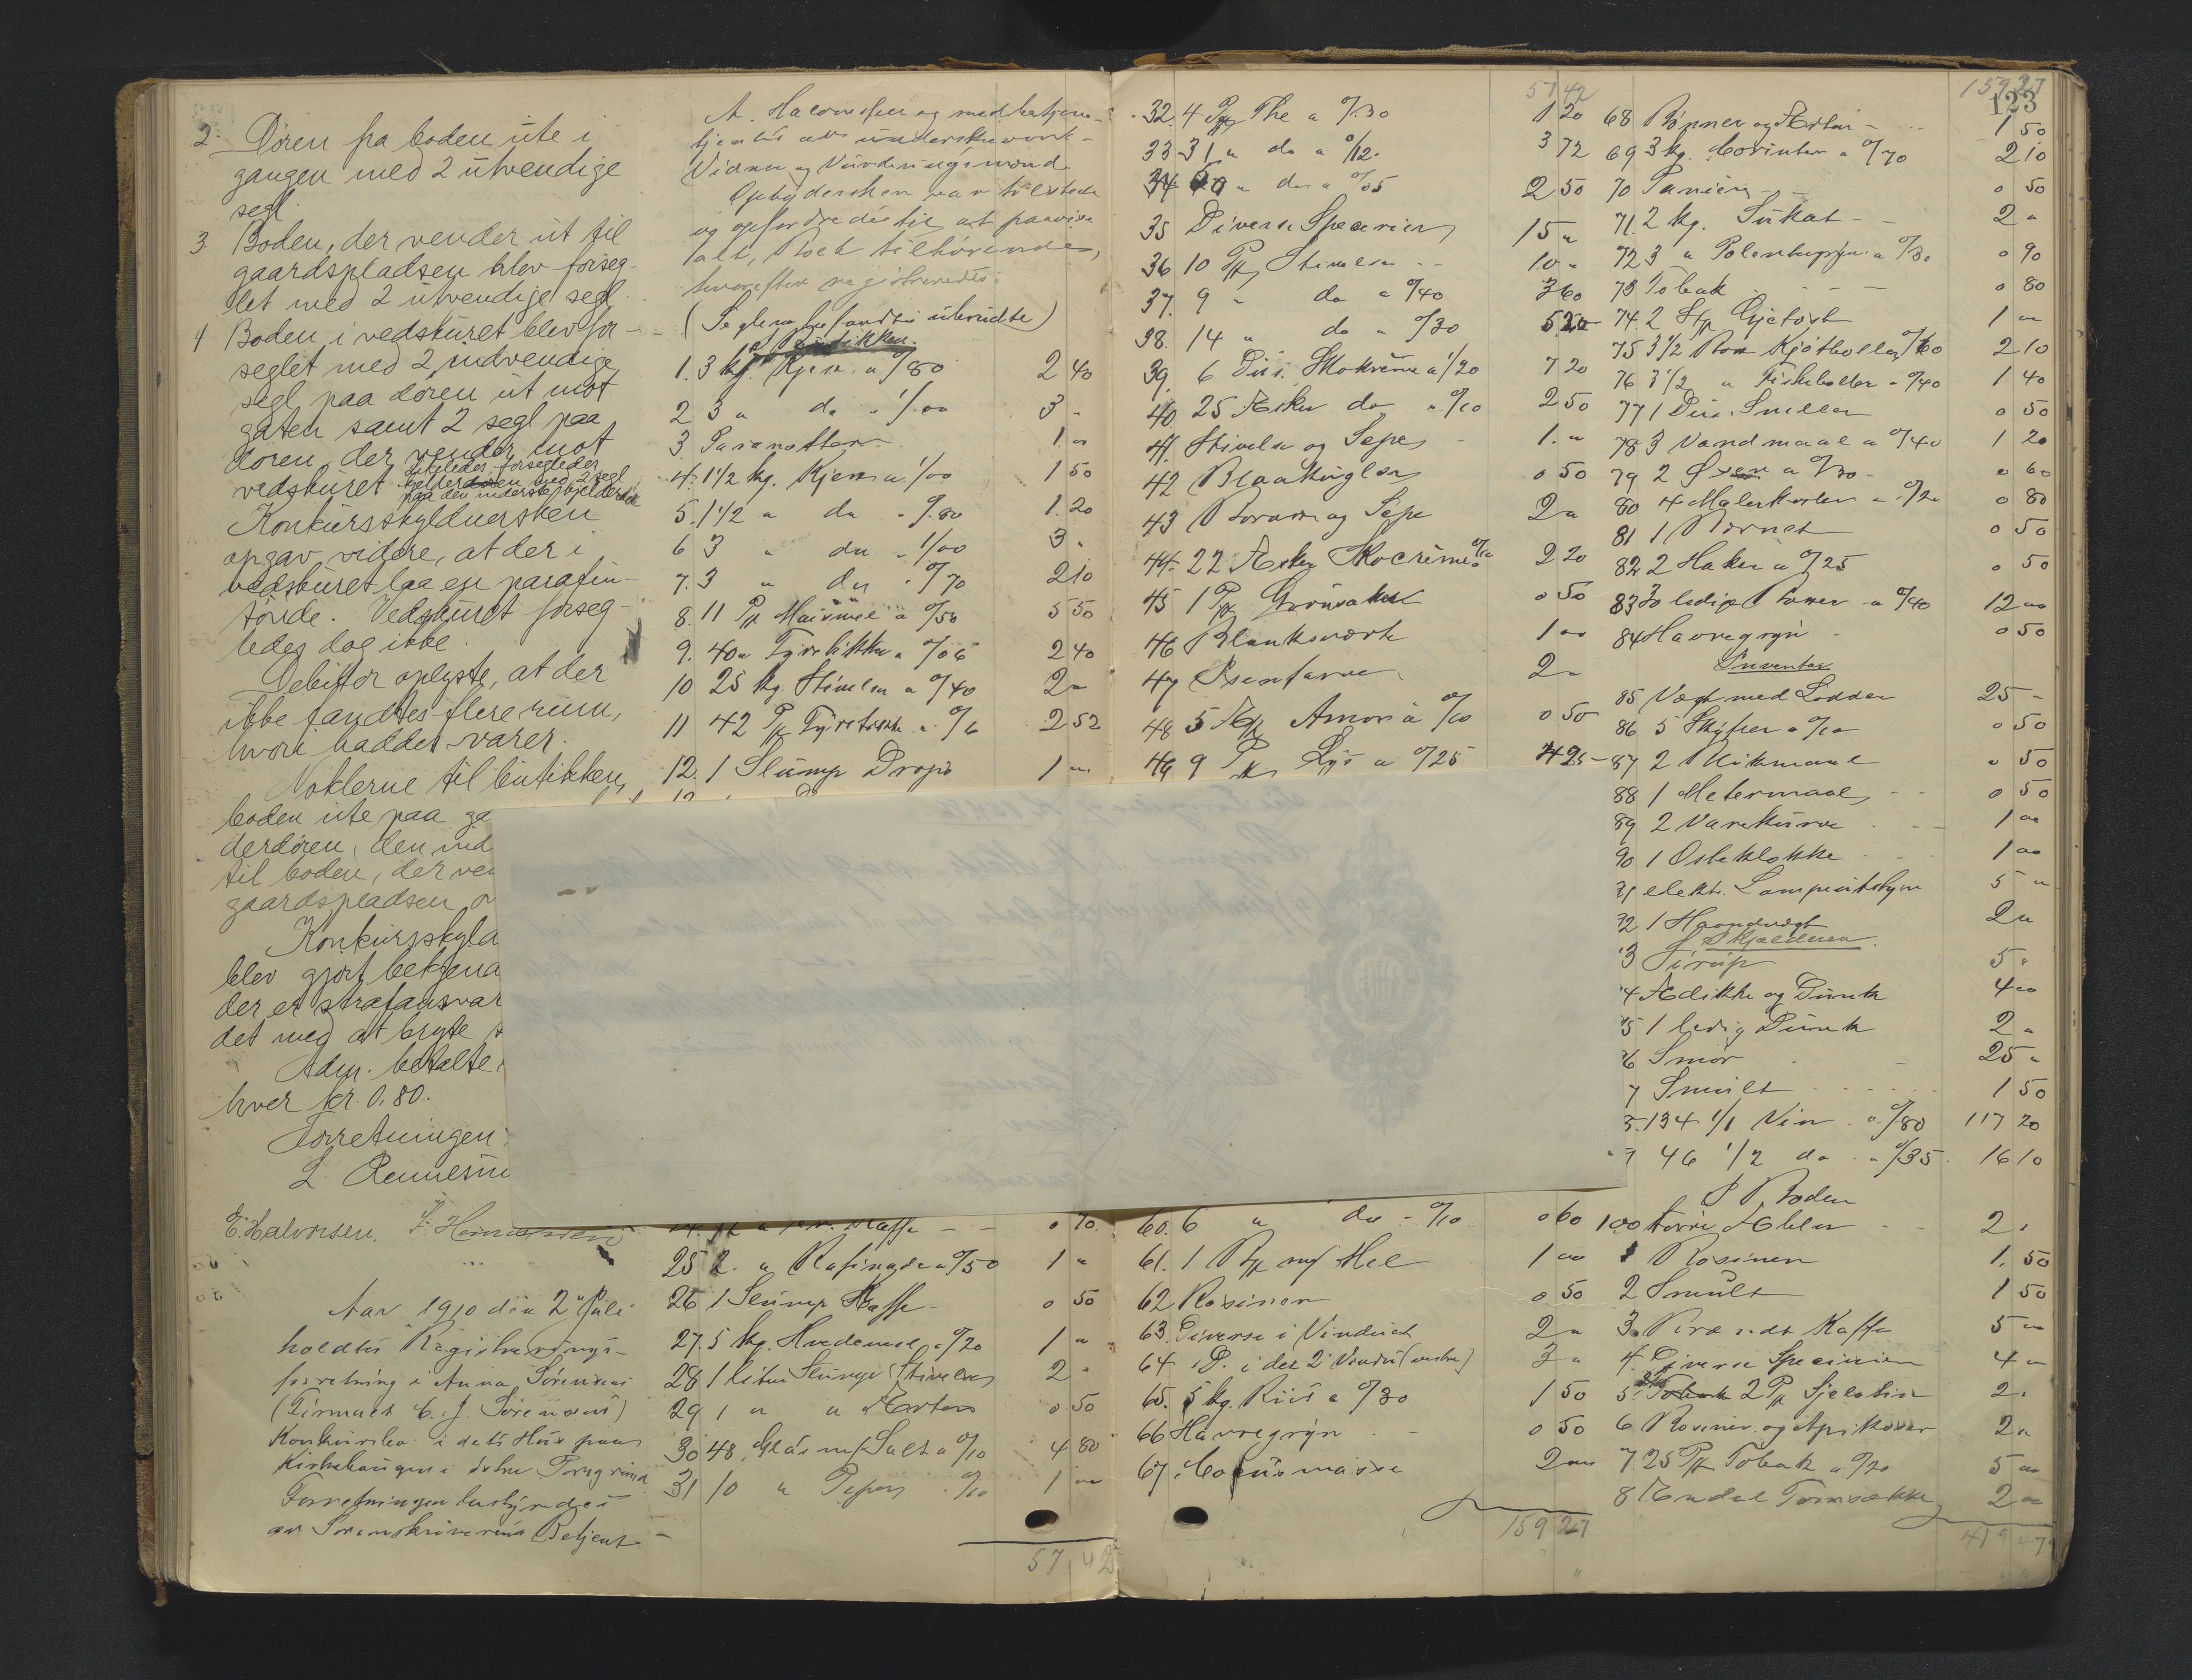 2. Døren fra boden ute i
gangen med 2 utvendige
segl.
3. Boden, der vender ut til
gaardspladsen blev forseg-
let med 2 utvendige segl.
4 Boden i vedskuret blev for-
seglet med 2 indvendige
segl paa døren ut mot
gaten samt 2 segl paa
døren, der vender mot
vedskuret. Likeledes forsegledes
kjelderdøren med 2 segl
paa den inderste kjelderdør
Konkursskyldnersken
opgav videre, at der i
vedskuret laa en parafin-
tønde. Vedskuret forseg-
ledes dog ikke.
Debitor oplyste, at der
ikke fandtes flere rum,
hvori haddes varer.
Nøklerne til butikken,
boden ute paa ga
derdøren, den ind
til boden, der ven
gaardspladsen o
Konkursskyld
blev gjort bekjend
der er strafansvar
det med at bryte
Adm. betalte
hver kr. 0.80.
Forretningen
L. Rennesun
E. Halvorsen.
Aar 1910 den 2 Juli
holdtes Registrerings-
forretning i Anna Sørensens
(Firmaet C. J. Sørensens)
Konkursbo i dets Hus paa
Kirkehaugen i østre Porsgrund
Forretningen bestyredes
av Sorenskriverens Betjent
A. Halvorsen og medbetjen-
tjentes av underskrevne
Vidner og Vurderingsmænd.
Opbydersken var tilstede
og opfordredes til at paavise
alt, Boet tilhørende,
hvorefter registreredes:
(Seglene befandtes ubrudte)
I Butikken.
1. 3 kg. Kjex a 0/80 2 40
2 3 " do " 1/00 3 "
3 Paranøtter 1 "
4. 1 1/2 kg. Kjex a 1/00 1 50
5. 1 1/2 " do " 0/80 1.20
6 3 " do " 1/00 3 "
7. 3 " do " 0/70 2 10
8. 11 Pk Maismel a 0/50 5 50
9. 40 " Fyrstikker a 0/06 2 40
10 25 kg. Stivelse a 0/40 2 "
11 42 Pk Fyrstikker a 0/6 2 52
12. 1 Slump Drops 1 "
Kaffe 0 70
25 2 " Rasinade a 0/50 1 "
26 1 Slump Kaffe 0 50
27. 5 kg. Hvedemel a 0/20 1 "
28 1 liten Slump Stivelse 2 "
29 1 " " Erter 0 50
30 48 Glas m/ Salt a 0/10 4 80
31 10 " Peper " 0/10 1 "
57 42
57 42
32. 4 Pk The a 0/30 1 20
33 31 " do a 0/12 3 72
34 " do a 0/05 2 50
35 Diverse Specerier 15 "
36 10 Pk Stivelse 10 "
37. 9 " do a 0/40 3 60
38. 14 " do " 0/30
39. 6 Dus. Skokreme a 1/20 7 20
40 25 Æsker do a 0/10 2 50
41. Stivelse og Sepe 1. "
42 Blaakugler 0 50
43 Borax og Sepe 2 "
44. 22 Æsker Skocreme 0/10 2 20
45 1 Pk Grønsaker 0 50
46 Blanksværte 1 00
47 Isenfarve 2 "
48 5 Stk Amor a 0/10 0 50
49 9 Pk Lys a 0/25
60. 6 " do " 0/10 0 60
61. 1 Pk m/ Mel 1 00
62 Rosiner 0 50
63. Diverse i Vinduet 2 "
64 D. i det 2 Vindu (venstre) 3 "
65. 5 kg. Riis a 0/30 1 50
66 Havregryn 0 50
67. Cocusmasse 2 00
159 27
159 27
123
68 Bønner og Erter 1 50
69 3 kg. Corinter a 0/70 2 10
70 Paniermel 0 50
71. 2 kg. Sukat 2 "
72 3 " Polentagryn a 0/30 0 90
73 Tobak 0 80
74. 2 Stk Gjetost 1 "
75 3 1/2 Box Kjøtboller a 0/60 2 10
76 3 1/2 " Fiskeboller a 0/40 1 40
77 1 Dus. Sneller 0 50
78 3 Vandmaal a 0/40 1 20
79 2 Øxer a 0/30 0 60
80 4 Malerkoster a 0/20 0 80
81 1 Børnet 0 50
82 2 Haker a 0/25 0 50
83 30 ledige Boxer a 0/40 12 00
84 Havregryn 0 50
Inventar
85 Vægt med Lodder 25 "
86 5 Skuffer a 0/10 0 50
87 2 Blikmaal " 50
88 1 Metermaal 0 50
89 2 Varekurve 1 00
90 1 Osteklokke 1 00
91 elektr. Lampeutstyr 5 "
92 1 Haandvægt 2 "
I Kjælderen.
3 Sirup 5 "
4 Edikke og Dunk 4 00
5 1 ledig Dunk 2 "
6 Smør 25 "
7 Smult 1 50
134 1/1 Vin a 0/80 117 20
46 1/2 do " 0/35 16 10
I Boden
100 tørre Æbler 2 "
1 Rosiner 1. 50
2 Smult 1 50
3. Brændt Kaffe 5 "
4. Diverse Specerier 4 "
5. 2 Pk Gjelatin 2 "
6 Rosiner og Aprikoser 2 "
7. 25 Pk Tobak a 0/20 5 00
8 Endel Tomsække 2 00
419 47